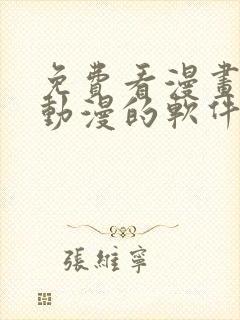 免費看漫畫
動漫的軟件
張維寧